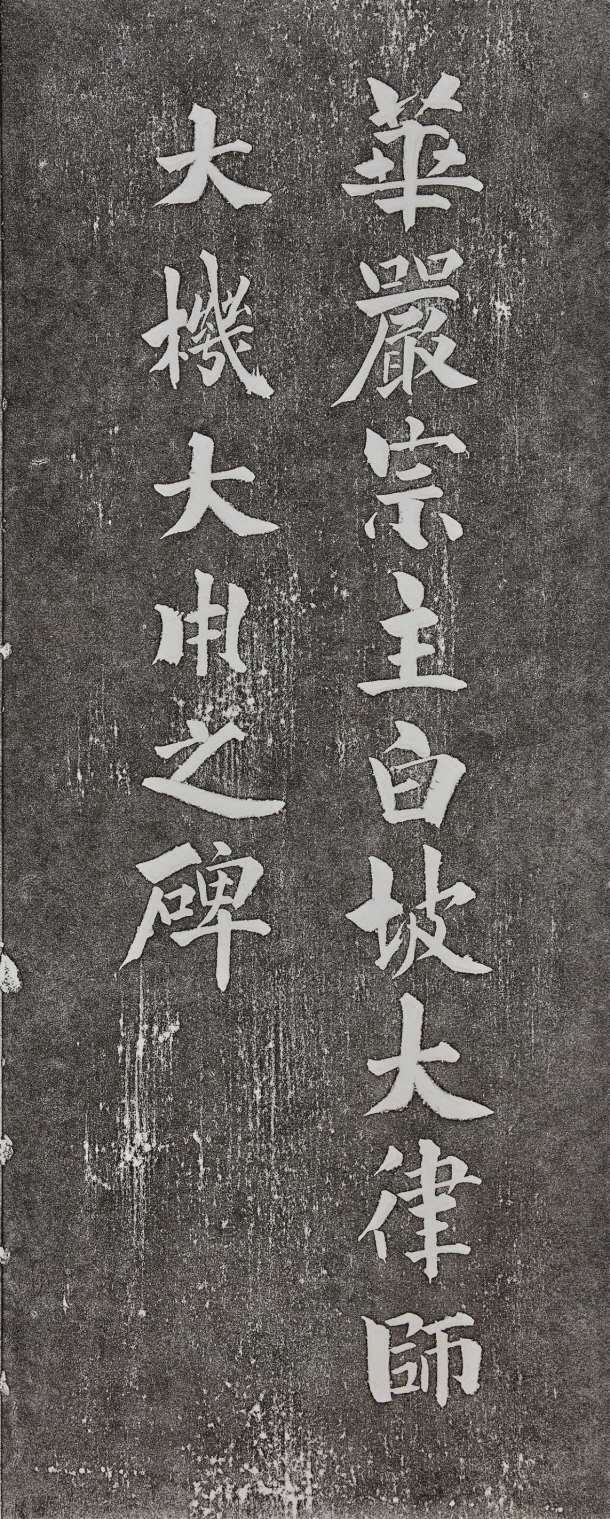 華嚴宗主白坡大律師
大機大用之碑